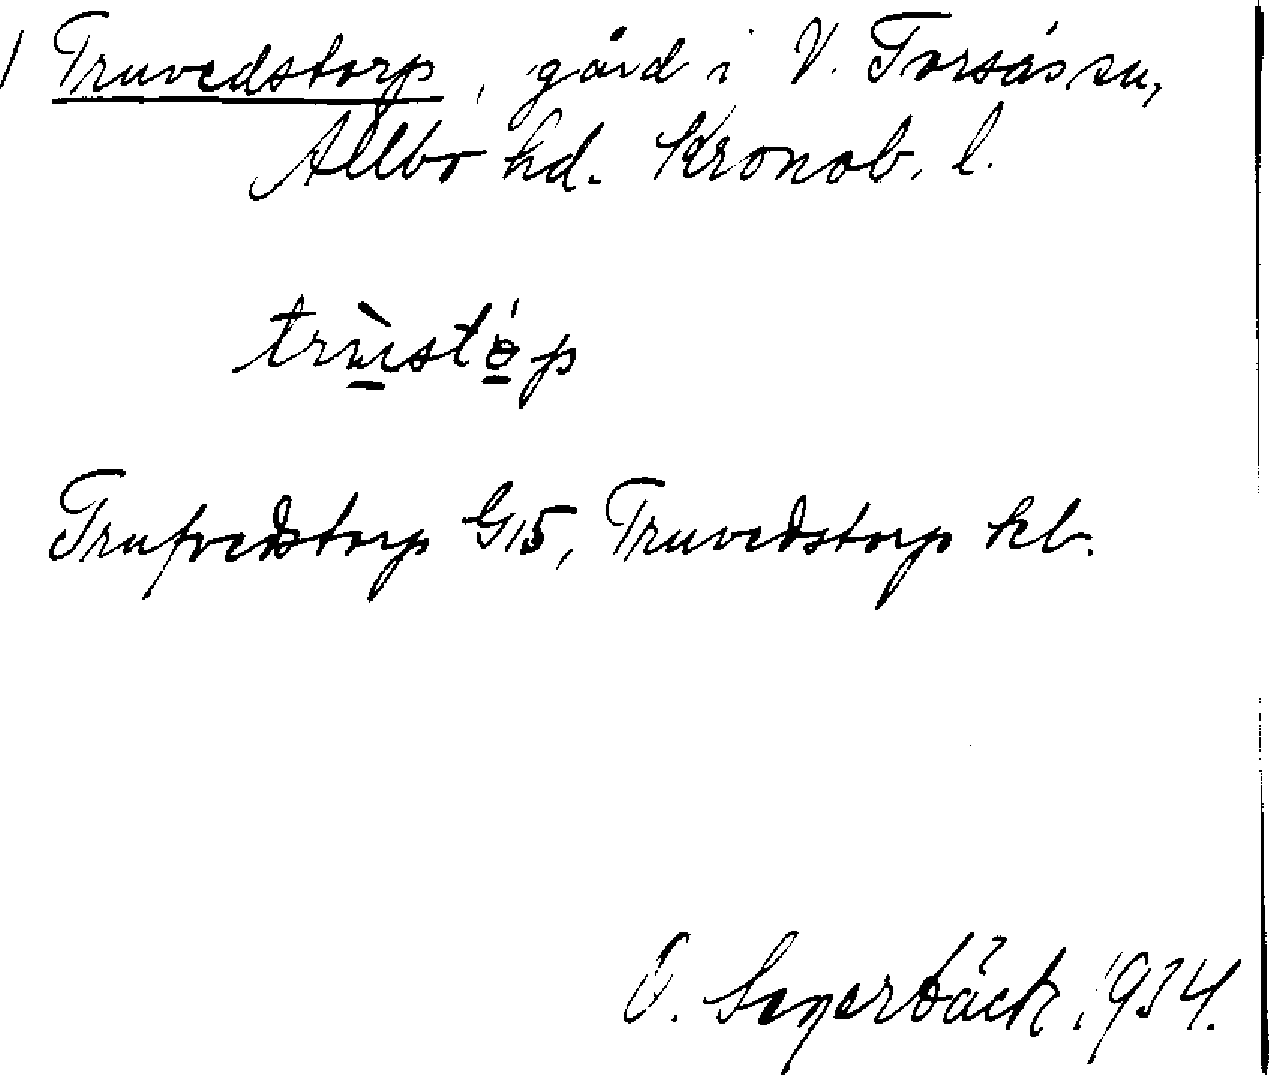 Truvedstorp, gård i V. Torsås sn,
Allbo hd. Kronob. l.
trùstɵ́p
Trufvedstorp G15, Truvedstorp kb.
O. Segerbäck. 1934.